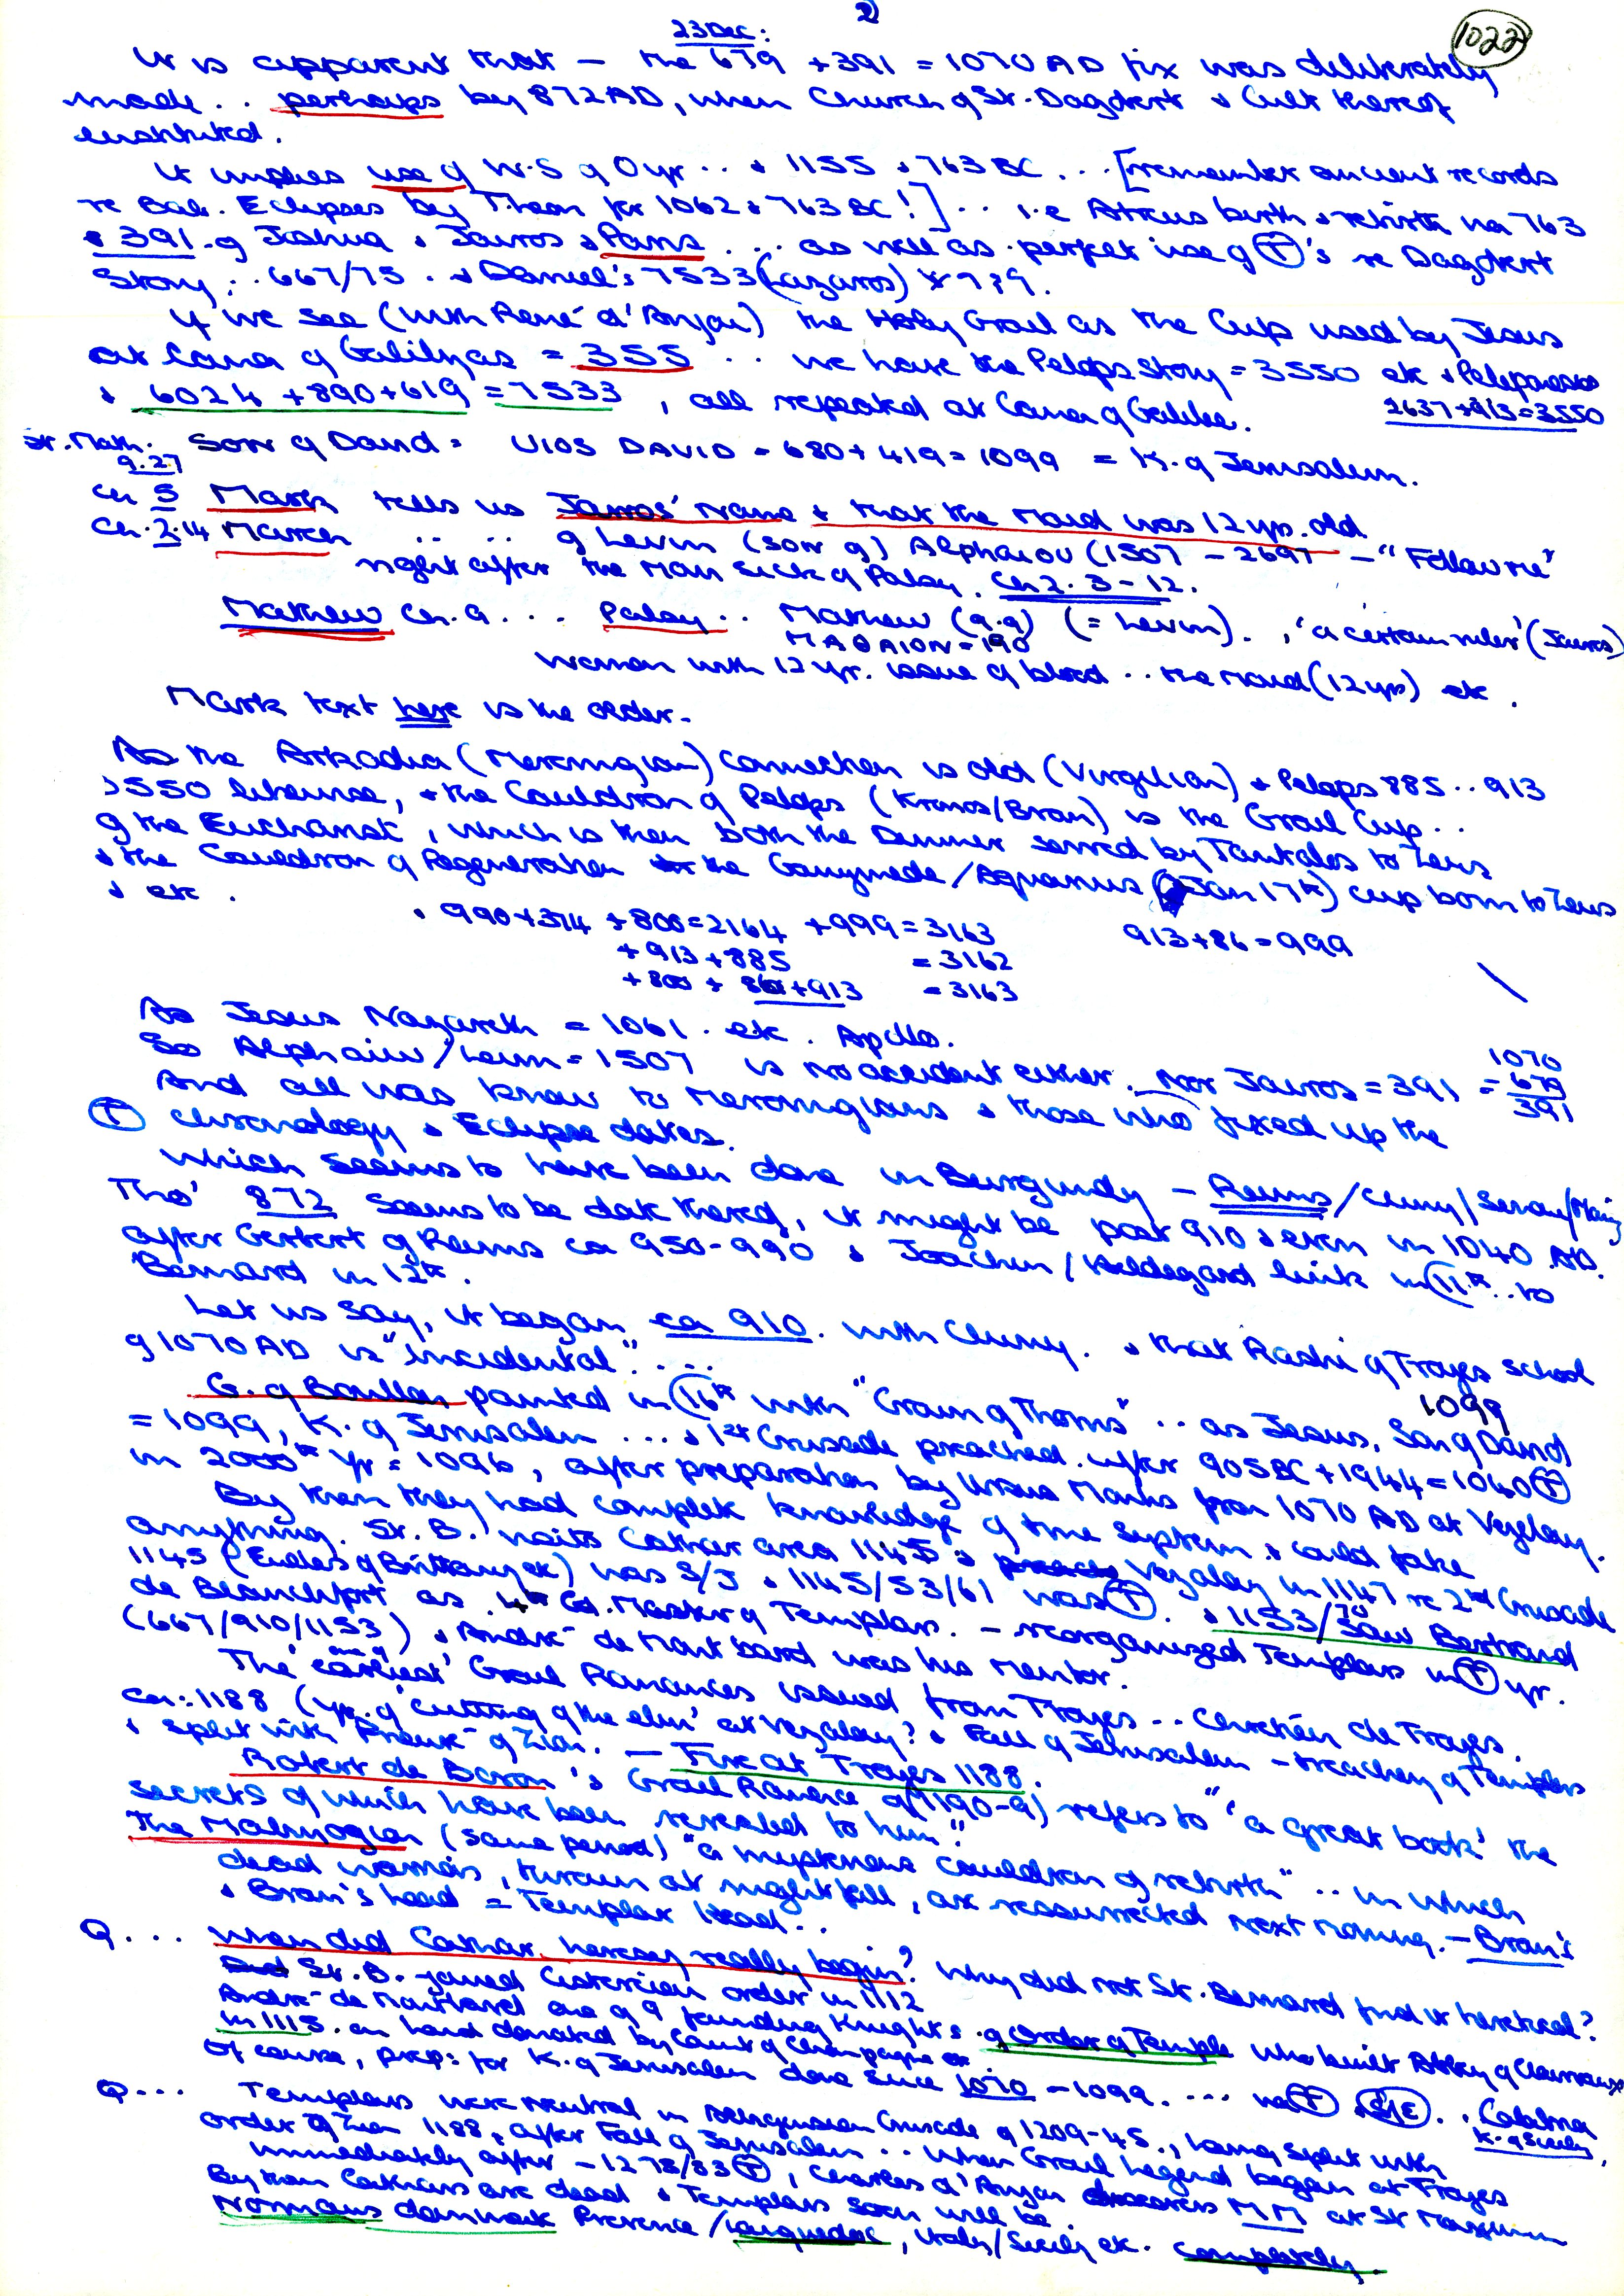 2
23 Dec:
1022
It is apparent that – the 679 + 391 = 1070 AD fix was deliberately
made .. perhaps by 872 AD, when Church of St. Dagobert & Cult thereof
instituted.
It implies use of W.S of 0 yr .. & 1155 & 763 BC ... [remember ancient records
re Bab. Eclipses by Theon for 1062 & 763 BC!] .. i.e Atreus birth & rebirth via 763
& 391 of Joshua & Jairos & Paris ... as well as perfect use of T's re Dagobert
Story: .. 667/75 . & Daniel's 7533 (Lazaros)
If we see (with René d'Anjou) the Holy Grail as the Cup used by Jesus
at Cana of Galilyas = 355 .. we have the Pelops Story = 3550 etc & Peloponessos
& 6024 + 890 + 619 = 7533, all repeated at Cana of Galilee.
2637 + 913 = 3550
St. Math: 9.27 Son of David = UIOS DAVID = 680 + 419 = 1099 = K. of Jerusalem.
Ch 5 Mark tells us Jairos' Name & that the Maid was 12 yrs. old
Ch. 2.14 March .. .. of Levin (son of) Alphaiou (1507 – 2697 – "Follow me"
right after the Man sick of Palsy. Ch 2. 3 – 12.
Mathew Ch. 9 ... Palsy .. Mathew (9.9) (= Levin) . , 'a certain ruler' (Jairos)
MAΘAION = 190
Woman with 12 yr. issue of blood .. the Maid (12 yrs) etc .
Mark text here is the older.
As the Arkadia (Merovingian) connection is old (Virgilian) & Pelops 885 .. 913
3550 likewise, & the Cauldron of Pelops (Kronos/Bran) is the Grail Cup ..
of the 'Eucharist', which is then both the Dinner served by Tantalos to Zeus
& the Cauldron of Regeneration the Ganymede/Aquarius (Jan 17th) cup born to Zeus
& etc .
990 + 374 + 800 = 2164 + 999 = 3163
913 + 86 = 999
+ 913 + 885 = 3162
+ 800 + 86 + 913 = 3163
As Jesus Nazareth = 1061 . etc . Apollo.
So Alphaiou/Levin = 1507 is no accident either. Nor Jairos = 391 = 1070
679
391
And all was know to Merovingians & those who fixed up the
T chronology & Eclipse dates.
Which seems to have been done in Burgundy – Reims/Cluny/
Tho' 872 seems to be date thereof, it might be post 910 & even in 1040 AD.
after Gerbert of Reims ca 950-990 & Joachim/Hildegard link in 11th .. to
Bernard in 12th.
Let us say, it began ca 910. with Cluny. & that Rashi of Troyes school
of 1070 AD is "incidental" ....
G. of Bouillon painted in 16th with "Crown of Thorns" .. as Jesus, Son of David
1099
= 1099, K. of Jerusalem ... & 1st Crusade preached after 905 BC + 1944 = 1040 T
in 2000th yr = 1096, after preparation by Ursus Monks from 1070 AD at Vezelay.
By then they had complete knowledge of time system & could fake
anything. St. B. visits Cathar area 1145 & Vezelay in 1147 re 2nd Crusade
1145 (Eudes of Brittany etc) was S/J & 1145/53/61 was T. & 1153/70 saw Bertrand
de Blanchfort as 4th Gd. Master of Templars. – reorganized Templars in T yr.
(667/910/1153) & André de Montbard was his Mentor.
The one of earliest' Grail Romances issued from Troyes .. Chrétien de Troyes.
ca: 1188 (yr. of 'cutting of the elm' at Vezalay? & Fall of Jerusalem – treachery of Templars
& split with Prieuré of Zion. – Fire at Troyes 1188.
Robert de Boron's Grail Romance of (1190-9) refers to "'a great book' the
secrets of which have been revealed to him".
The Mabinogion (same period) "a mysterious cauldron of rebirth" .. in which
dead warriors, thrown at nightfall, are ressurrected next morning. – Bran's
& Bran's head = Templar Head ..
Q .... When did Cathar heresy really begin? Why did not St. Bernard find it heretical?
St. B. joined Cistercian order in 1112
André de Montbard one of 9 founding Knights of Order of Temple who built Abbey of Clairvaux
in 1115 on land donated by Count of Champagne
Of course, prep: for K. of Jerusalem done since 1070 – 1099. ... via T & S/E . . Catalina
K. of Sicily,
Q ... Templars were neutral in Albigensian Crusade of 1209-45., having split with
Order of Zion 1188, after Fall of Jerusalem .. When Grail Legend began at Troyes
immediately after – 1278/83 T, Charles d'Anjou discovers MM at St Maximin
By then Cathars are dead & Templars soon will be.
Normans dominate Provence/Languedoc, Italy/Sicily etc. completely.